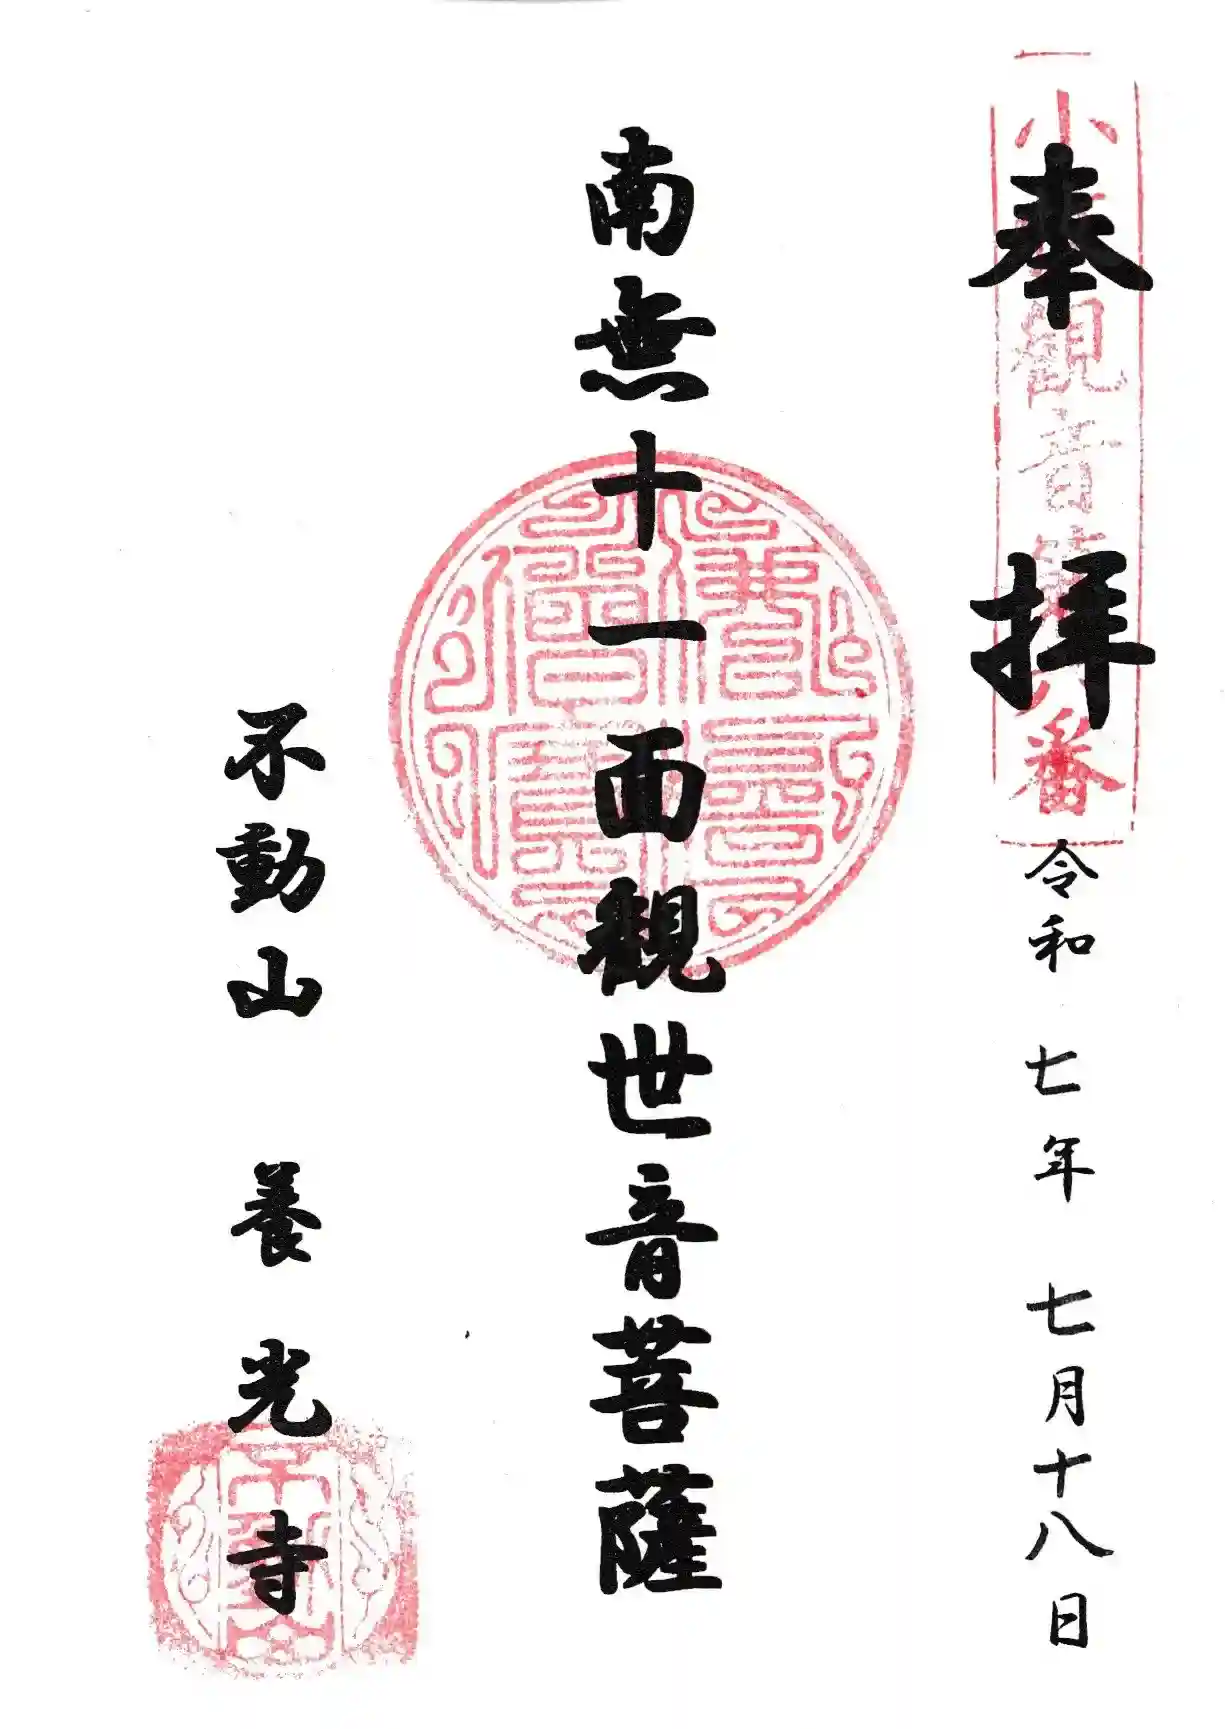 奉拝
令和七年七月十八日
南無十一面観世音菩薩
不動山 養光寺